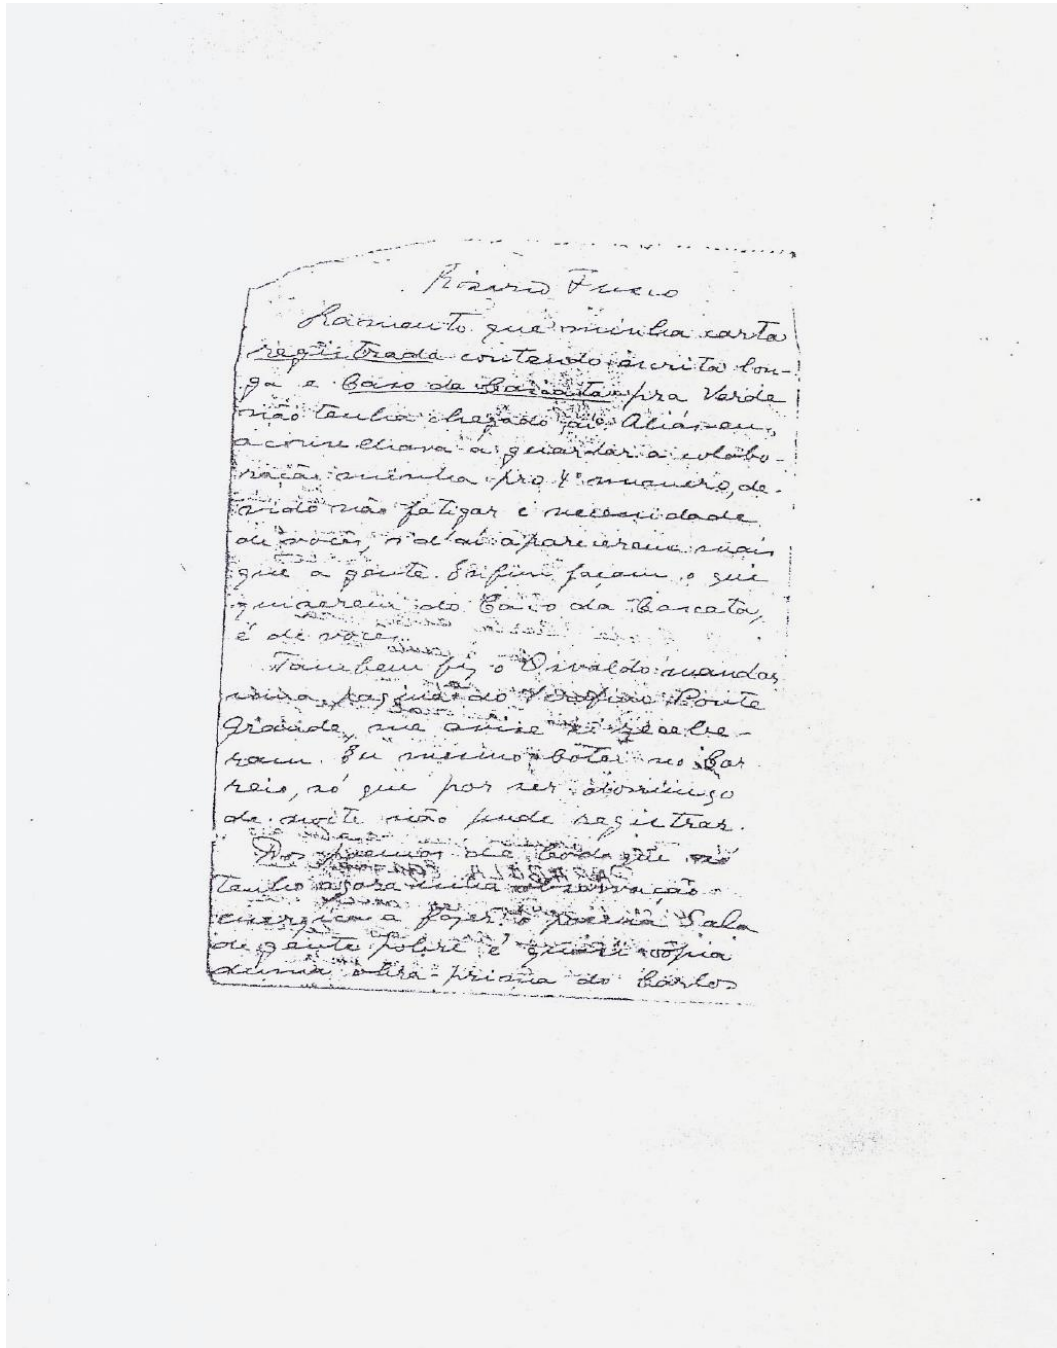 Rosario Fusco
Lamento que minha carta
registrada contendo escrita lon-
ga e Caso da Cascata pra Verde
não tenha chegado aí. Aliás eu
aconselhava á guardar a colabo-
ração minha pro 4º numero, de-
vido não fatigar e necessidade
de vocês, d'aí aparecerem mais
que a gente. Enfim façam o que
quiserem do Caso da Cascata,
é de vocês.
Tambem fiz o Osvaldo mandar
uma pagina do Serafim Ponte
Grande, me avise si recebe-
ram. Eu mesmo botei no Cor-
reio, só que por ser domingo
de noite não pude registrar.
Dos poemas de você que só
tenho agora uma observação
energica a fazer: o poema Sala
de gente pobre é quasi cópia
duma obra-prima do Carlos